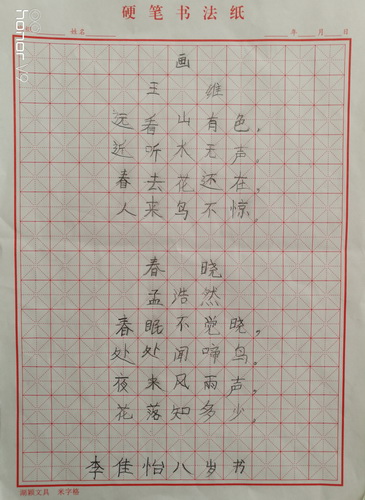 硬笔书法纸
姓名 年 月 日
画
王 维
远看山有色，
近听水无声。
春去花还在，
人来鸟不惊。
春 晓
孟浩然
春眠不觉晓，
处处闻啼鸟。
夜来风雨声，
花落知多少。
李佳怡八岁书
米字格
honor V9